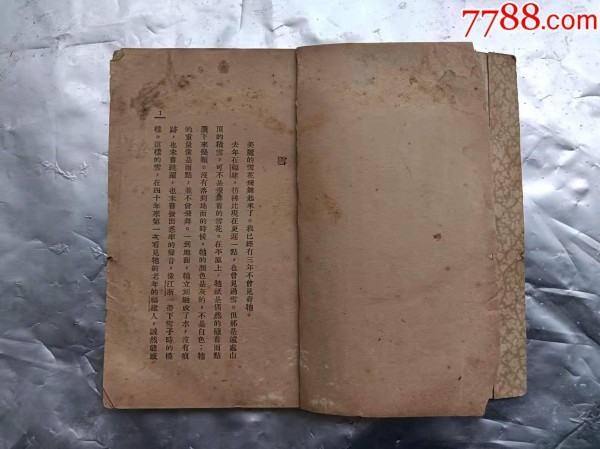 7788.com
雪
美麗的雪花飛舞起來了。我已經有三年不曾見着牠。
去年在福建，彷彿比現在更遲一點，也曾見過雪。但那是遠處山
頂的積雪，可不是飛舞着的雪花。在平原上，牠祇是偶然的隨着雨點
灑下來幾顆。沒有落到地面的時候，牠的顏色是灰的，不是白色；牠
的重量像是雨點，並不會飛舞。一到地面，牠立刻融成了水，沒有痕
跡，也未嘗跳躍，也未嘗發出悉率的聲音，像江浙一帶下雪子時的模
樣。這樣的雪，在四十年來第一次看見牠的老年的福建人，誠然能感
1